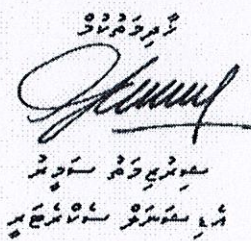 ޚާދިމަތުކުމް
ޝިރުޒިމަތު ސަމީރު
އެޑިޝަނަލް ސެކްރެޓަރީ